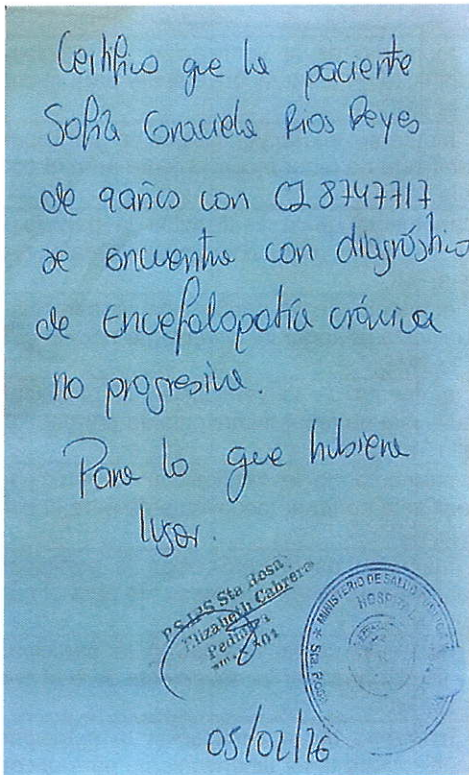 Certifico que la paciente
Sofía Graciela Rios Reyes
de 9 años con CI 8747717
se encuentra con diagnóstico
de Encefalopatía crónica
no progresiva.
Para lo que hubiere
lugar.
P.S. IPS Sta. Rosa
Elizabeth Cabrera
MINISTERIO DE SALUD
HOSPITAL
Sta. Rosa
05/02/26